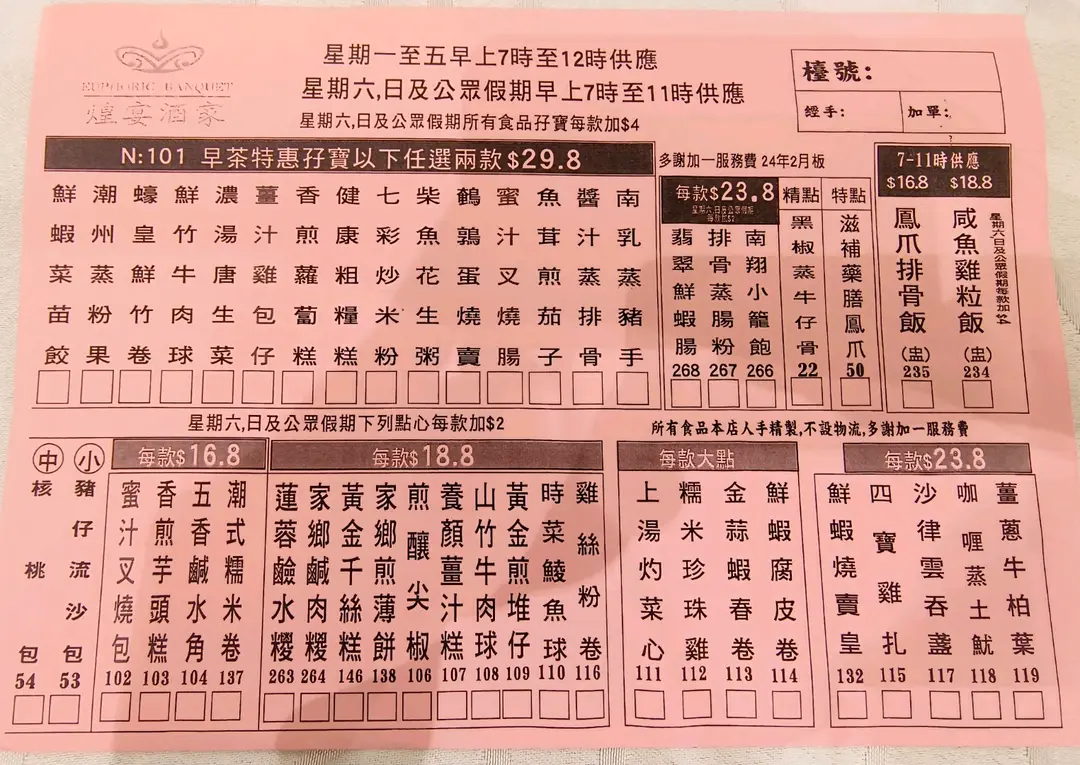 EUPHORIC BANQUET
煌宴酒家
星期一至五早上7時至12時供應
星期六,日及公眾假期早上7時至11時供應
星期六,日及公眾假期所有食品孖寶每款加$4
檯號:
經手:
加單:
N:101 早茶特惠孖寶以下任選兩款 $29.8
鮮蝦菜苗餃
潮州蒸粉果
蠔皇鮮竹卷
鮮竹牛肉球
濃湯唐生菜
薑汁雞包仔
香煎蘿蔔糕
健康粗糧糕
七彩炒米粉
柴魚花生粥
鵪鶉蛋燒賣
蜜汁叉燒腸
魚茸煎茄子
醬汁蒸排骨
南乳蒸豬手
多謝加一服務費 24年2月板
每款$23.8
星期六,日及公眾假期
每款加$2
翡翠鮮蝦腸 268
排骨蒸腸粉 267
南翔小籠飽 266
精點
黑椒蒸牛仔骨 22
特點
滋補藥膳鳳爪 50
7-11時供應
$16.8 $18.8
鳳爪排骨飯 (盅) 235
咸魚雞粒飯 (盅) 234
星期六日及公眾假期每款加$4
星期六,日及公眾假期下列點心每款加$2
所有食品本店人手精製,不設物流,多謝加一服務費
中 核桃包 54
小 豬仔流沙包 53
每款$16.8
蜜汁叉燒包 102
香煎芋頭糕 103
五香鹹水角 104
潮式糯米卷 137
每款$18.8
蓮蓉鹼水糉 263
家鄉鹹肉糉 264
黃金千絲糕 146
家鄉煎薄餅 138
煎釀尖椒 106
養顏薑汁糕 107
山竹牛肉球 108
黃金煎堆仔 109
時菜鯪魚球 110
雞絲粉卷 116
每款大點
上湯灼菜心 111
糯米珍珠雞 112
金蒜蝦春卷 113
鮮蝦腐皮卷 114
每款$23.8
鮮蝦燒賣皇 132
四寶雞扎 115
沙律雲吞盞 117
咖喱蒸土魷 118
薑蔥牛柏葉 119